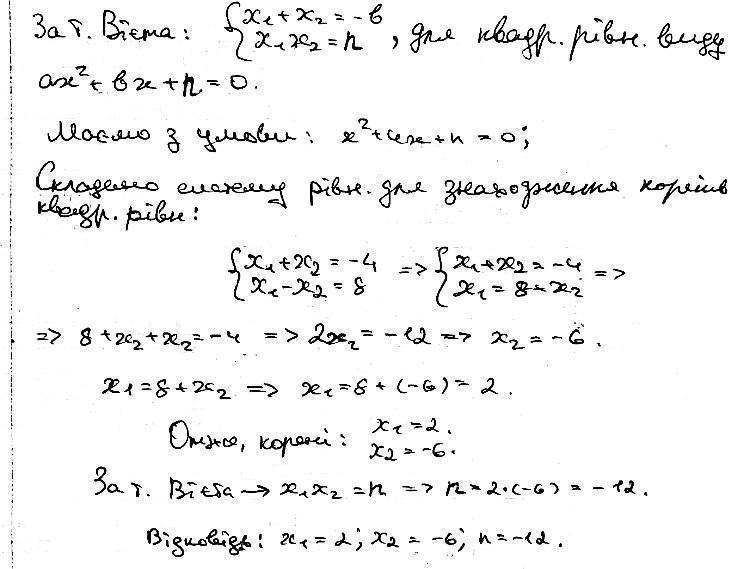 За т. Вієта: { x₁+x₂=-в
x₁x₂=n , для квадр. рівн. виду
ax²+вx+n=0.
Маємо з умови: x²+4x+n=0;
Складемо систему рівн. для знаходження коренів
квадр. рівн:
{ x₁+x₂=-4 => { x₁+x₂=-4 =>
x₁-x₂=8 x₁=8+x₂
=> 8+x₂+x₂=-4 => 2x₂=-12 => x₂=-6.
x₁=8+x₂ => x₁=8+(-6)=2.
Отже, корені: x₁=2.
x₂=-6.
За т. Вієта → x₁x₂=n => n=2·(-6)=-12.
Відповідь: x₁=2; x₂=-6; n=-12.